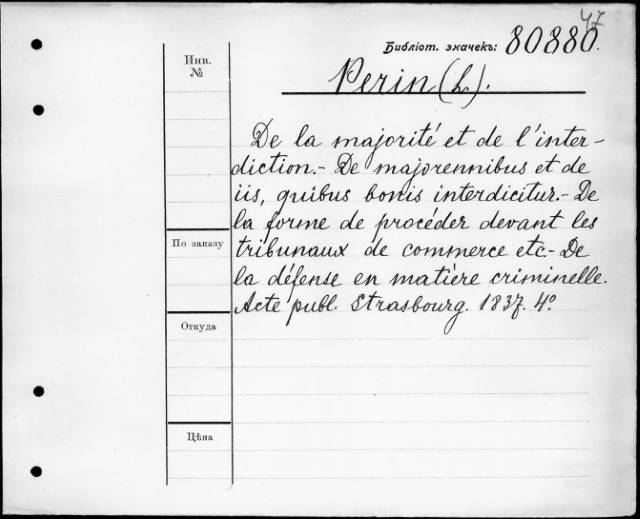 47
Библіот. значекъ: 80880.
Инв.
№
Perin (L.).
De la majorité et de l'inter-
diction.- De majorennibus et de
iis, quibus bonis interdicitur.- De
la forme de procéder devant les
По заказу
tribunaux de commerce etc.- De
la défense en matière criminelle.
Acte publ. Strasbourg. 1837. 4º.
Откуда
Цѣна